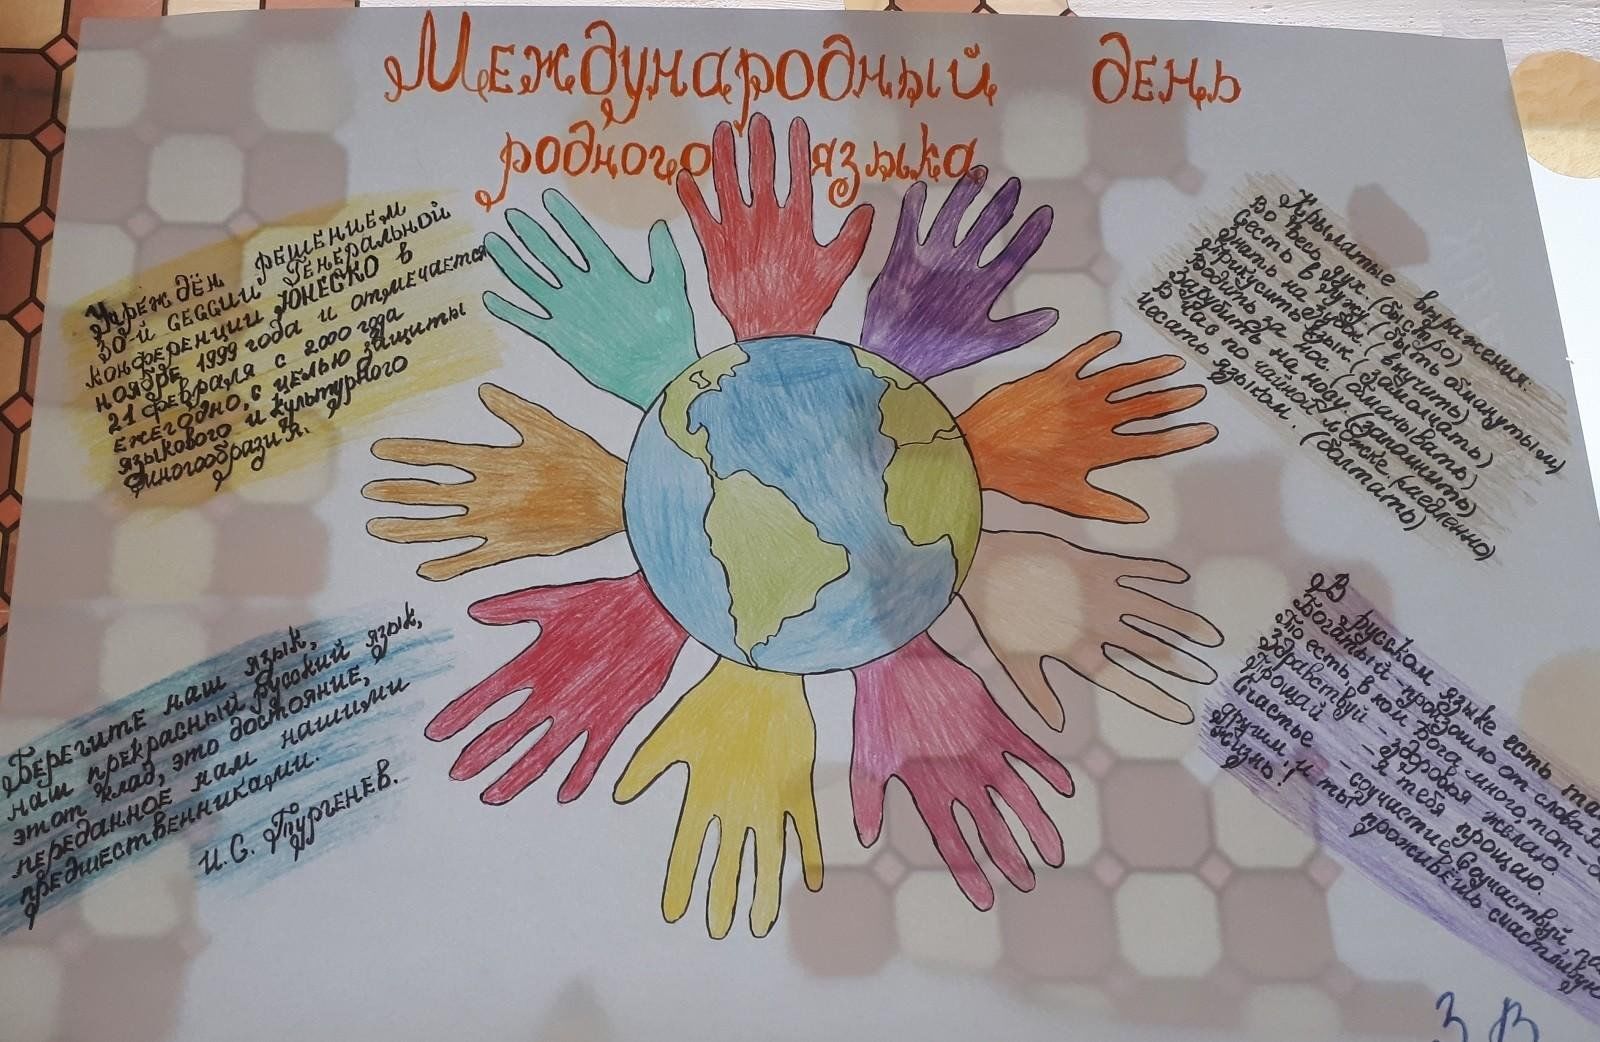 Международный день
родного языка
Учреждён решением
30-й сессии Генеральной
конференции ЮНЕСКО в
ноябре 1999 года и отмечается
21 февраля с 2000 года
ежегодно, с целью защиты
языкового и культурного
многообразия.
Крылатые выражения:
Во весь дух. (быстро)
Сесть в лужу. (быть обманутым)
Знать на зубок. (выучить)
Прикусить язык. (замолчать)
Водить за нос. (обманывать)
Зарубить на носу. (запомнить)
В час по чайной ложке. (медленно)
Чесать языком. (болтать)
Берегите наш язык,
наш прекрасный русский язык,
этот клад, это достояние,
переданное нам нашими
предшественниками.
И.С. Тургенев.
В русском языке есть
Богатый - произошло от слова
То есть, в ком Бога много, тот -
Здравствуй - здоровья желаю.
Прощай - я тебя прощаю.
Счастье - соучастие. Соучаствуй,
другим, и ты проживёшь счастливую
жизнь!
3 В